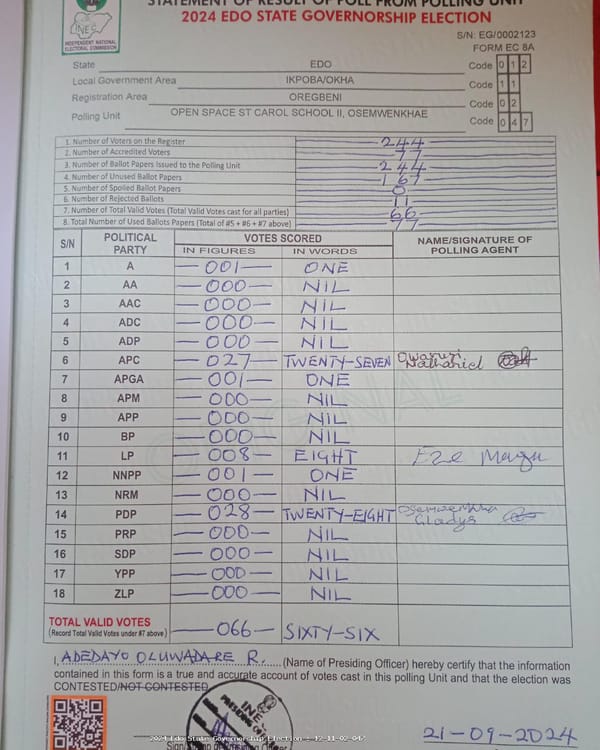 STATEMENT OF RESULT OF POLL FROM POLLING UNIT
2024 EDO STATE GOVERNORSHIP ELECTION
INEC
INDEPENDENT NATIONAL
ELECTORAL COMMISSION
S/N: EG/0002123
FORM EC 8A
State EDO Code 0 1 2
Local Government Area IKPOBA/OKHA Code 1 1
Registration Area OREGBENI Code 0 2
Polling Unit OPEN SPACE ST CAROL SCHOOL II, OSEMWENKHAE Code 0 4 7
1. Number of Voters on the Register 244
2. Number of Accredited Voters 77
3. Number of Ballot Papers Issued to the Polling Unit 244
4. Number of Unused Ballot Papers 167
5. Number of Spoiled Ballot Papers 0
6. Number of Rejected Ballots 11
7. Number of Total Valid Votes (Total Valid Votes cast for all parties) 66
8. Total Number of Used Ballots Papers (Total of #5 + #6 + #7 above) 77
S/N POLITICAL PARTY VOTES SCORED NAME/SIGNATURE OF POLLING AGENT
IN FIGURES IN WORDS
1 A 001 ONE
2 AA 000 NIL
3 AAC 000 NIL
4 ADC 000 NIL
5 ADP 000 NIL
6 APC 027 TWENTY-SEVEN Nathaniel
7 APGA 001 ONE
8 APM 000 NIL
9 APP 000 NIL
10 BP 000 NIL
11 LP 008 EIGHT Eze
12 NNPP 001 ONE
13 NRM 000 NIL
14 PDP 028 TWENTY-EIGHT Gladys
15 PRP 000 NIL
16 SDP 000 NIL
17 YPP 000 NIL
18 ZLP 000 NIL
TOTAL VALID VOTES 066 SIXTY-SIX
(Record Total Valid Votes under #7 above)
I, ADEDAYO OLUWADARE R. (Name of Presiding Officer) hereby certify that the information
contained in this form is a true and accurate account of votes cast in this polling Unit and that the election was
CONTESTED/NOT CONTESTED
INEC
PRESIDING
2024 Edo State Governorship Election - 12-11-02-047
21-09-2024